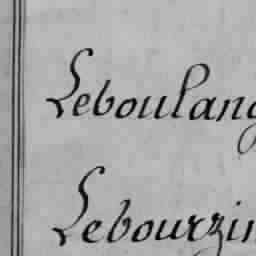 Leboulang
Lebourzin